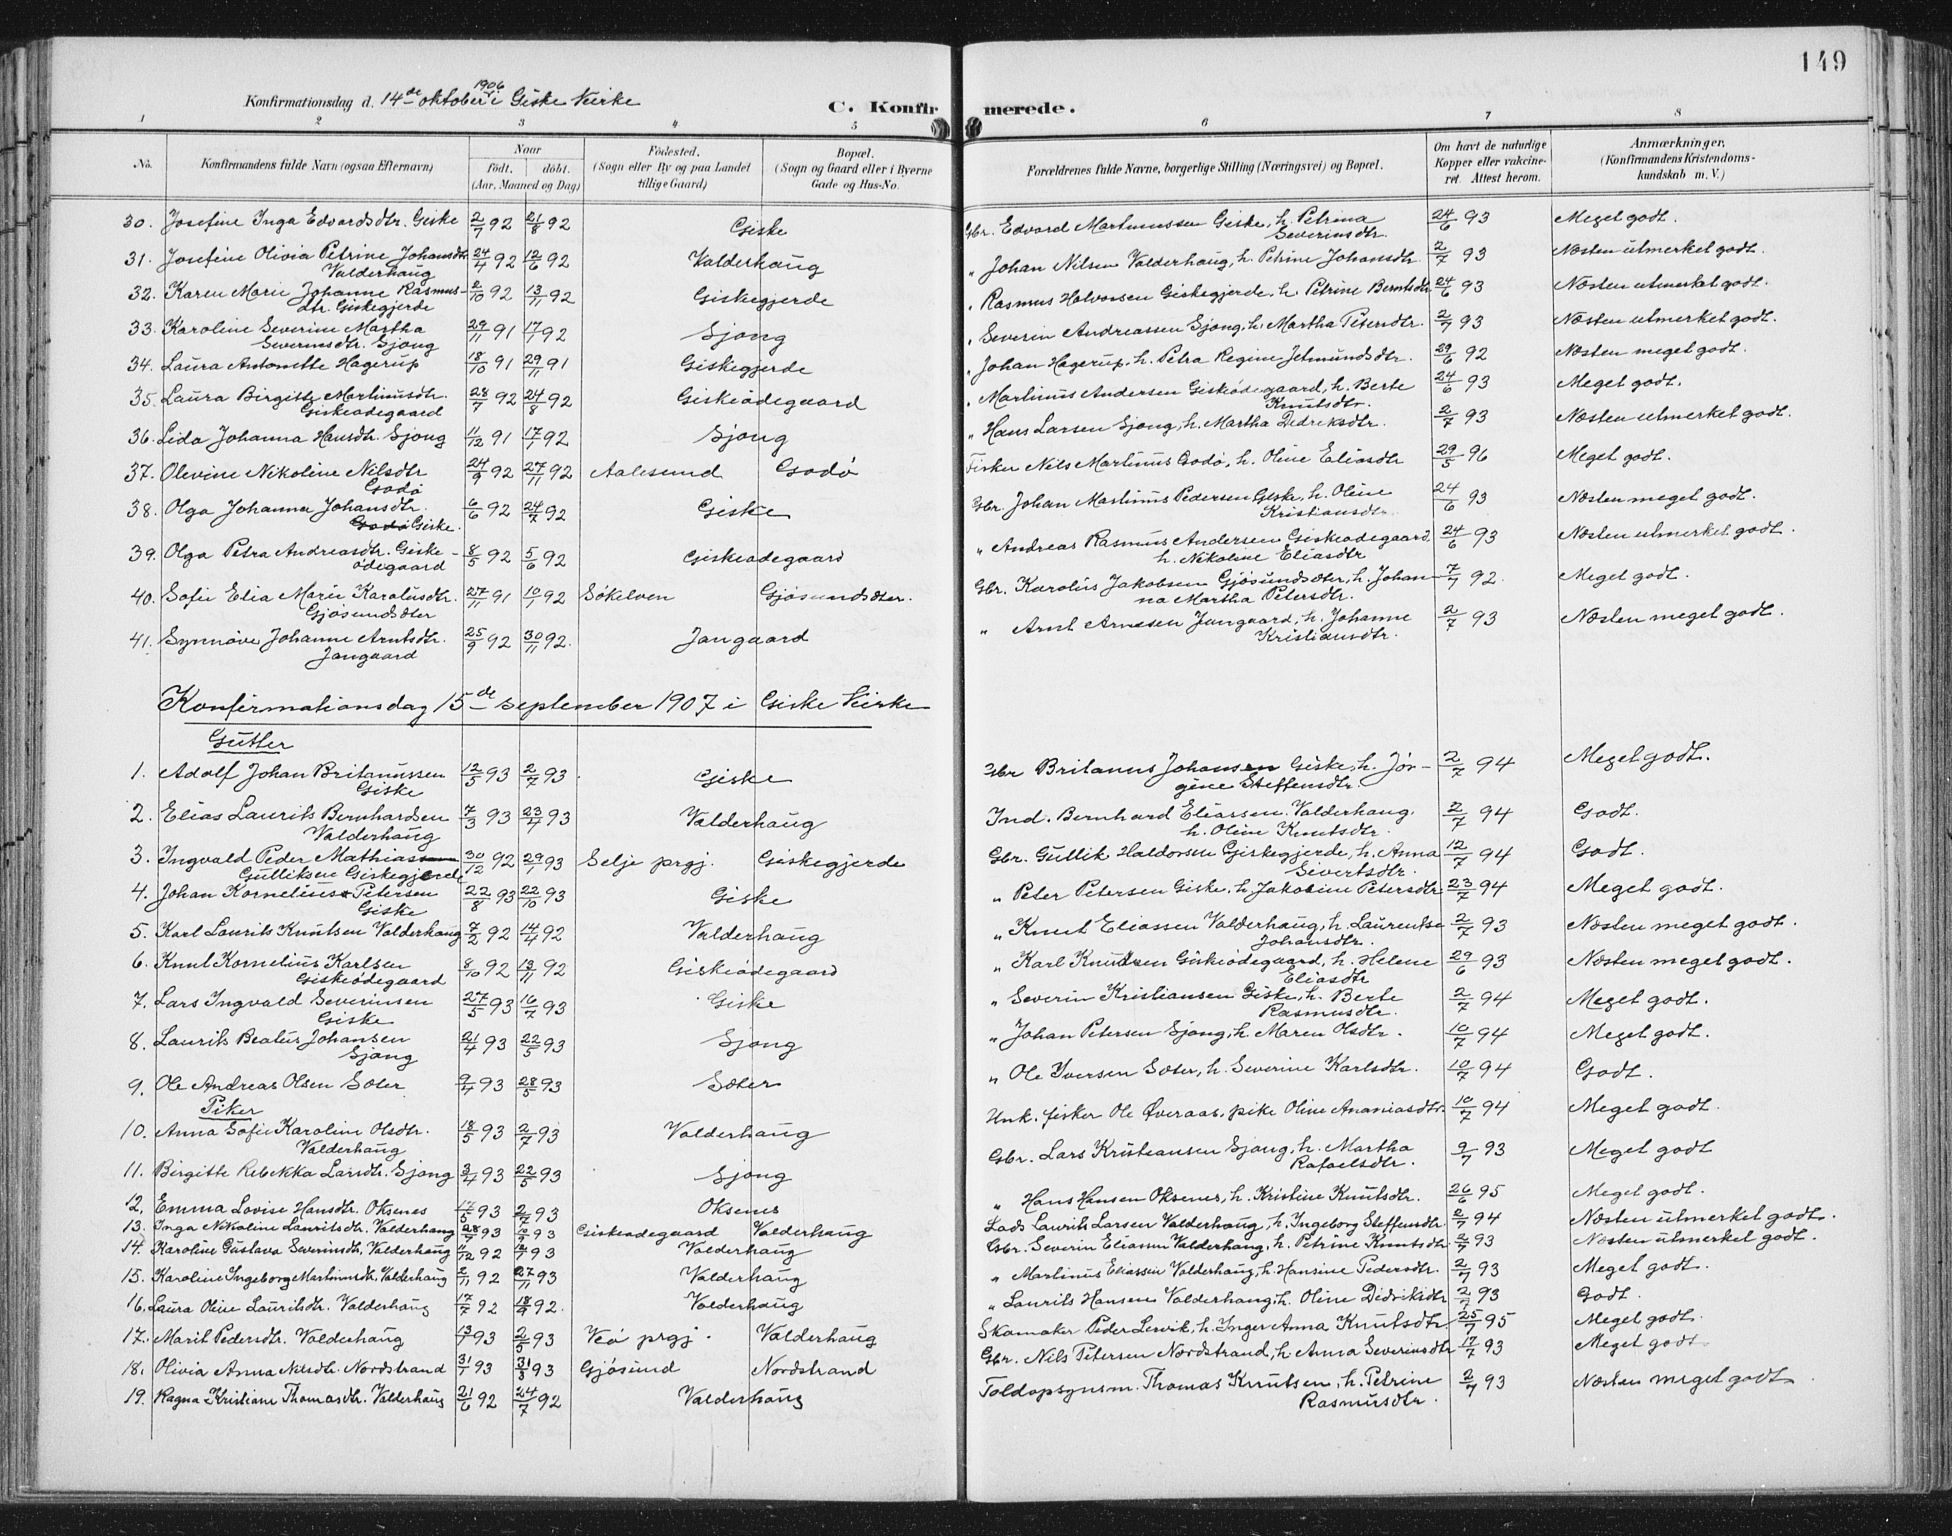 149
Konfirmationsdag d. 14de oktober 1906 i Giske Kirke C. Konfirmerede.
1 2 3 4 5 6 7 8
No. Konfirmandens fulde Navn (ogsaa Efternavn) Naar født. døbt. (Aar, Maaned og Dag) Fødested. (Sogn eller By og paa Landet tillige Gaard) Bopæl. (Sogn og Gaard eller i Byerne Gade og Hus-No. Forældrenes fulde Navne, borgerlige Stilling (Næringsvei) og Bopæl. Om havt de naturlige Kopper eller vaccineret. Attest herom. Anmærkninger. (Konfirmandens Kristendomskundskab m. V.)
30. Josefine Inga Edvardsdtr. Giske 2/7 92 21/8 92 Giske Gbr. Edvard Martinussen Giske, h. Petrina 24/6 93 Meget godt.
Severinsdtr.
31. Josefine Olivia Petrine Johansdtr 24/4 92 12/6 92 Valderhaug " Johan Nilsen Valderhaug, h. Petrine Johansdtr 2/7 93 Næsten utmerket godt.
Valderhaug
32. Karen Marie Johanne Rasmus- 2/10 92 13/11 92 Giskegjerde " Rasmus Halvorsen Giskegjerde, h. Petrine Berntsdtr 24/6 93 Næsten utmerket godt.
dtr. Giskegjerde
33. Karoline Severine Martha 29/11 91 17/1 92 Sjong " Severin Andreassen Sjong, h. Martha Petersdtr. 2/7 93 Næsten utmerket godt.
Severinsdtr. Sjong
34. Laura Antonette Hagerup 18/10 91 29/11 91 Giskegjerde " Johan Hagerup, h. Petra Regine Jetmundsdtr. 29/6 92 Næsten meget godt.
35. Laura Birgitte Martinusdtr. 28/7 92 24/8 92 Giskeødegaard " Martinus Andersen Giskeødegaard, h. Berte 24/6 93 Meget godt.
Giskeødegaard Knutsdtr.
36. Lida Johanna Hansdtr. Sjong 11/12 91 17/1 92 Sjong " Hans Larsen Sjong, h. Martha Didreksdtr. 2/7 93 Næsten utmerket godt.
37. Olevine Nikoline Nilsdtr 24/9 92 27/11 92 Aalesund Godø Fisker Nils Martinus Godø, h. Oline Eliasdtr 29/5 96 Meget godt.
Godø
38. Olga Johanna Johansdtr. 6/6 92 24/7 92 Giske Gbr. Johan Martinus Pedersen Giske, h. Oline 24/6 93 Næsten meget godt.
Godø Giske. Kristiansdtr
39. Olga Petra Andreasdtr. Giske- 8/5 92 5/6 92 Giskeødegaard " Andreas Rasmus Andersen Giskeødegaard, 24/6 93 Næsten utmerket godt.
ødegaard h. Nikoline Eliasdtr
40. Sofie Elia Marie Karolusdtr. 27/11 91 10/1 92 Søkelven Gjøsundsæter. Gbr. Karolus Jakobsen Gjøsundsæter, h. Johan- 7/7 92. Meget godt.
Gjøsundsæter na Martha Petersdtr.
41. Synnøve Johanne Arntsdtr. 25/9 92 30/11 92. Jangaard " Arnt Arnesen Jangaard, h. Johanne 2/7 93 Næsten meget godt.
Jangaard Kristiansdtr.
Konfirmationsdag 15de september 1907 i Giske Kirke
Gutter
1. Adolf Johan Britanussen 12/5 93 2/7 93. Giske Gbr Britanus Johansen Giske, h. Jør- 2/7 94 Meget godt.
Giske gine Steffensdtr.
2. Elias Laurits Bernhardsen 7/3 93 23/4 93 Valderhaug Ind. Bernhard Eliassen Valderhaug. 2/7 94 Godt.
Valderhaug h. Oline Knutsdtr.
3. Ingvald Peder Mathiassen 30/12 92 29/1 93 Selje prgj. Giskegjerde Gbr. Gullik Haldorsen Giskegjerde, h. Anna 12/7 94 Godt.
Gulliksen Giskegjerde Sivertsdtr.
4. Johan Kornelius Petersen 22/8 93 22/10 93 Giske " Peter Petersen Giske, h. Jakobine Petersdtr 23/7 94 Meget godt.
Giske
5. Karl Laurits Knutsen Valderhaug 7/2 92 14/4 92 Valderhaug " Knut Eliassen Valderhaug, h. Laurentse 2/7 93 Næsten meget godt.
Johansdtr.
6. Knut Kornelius Karlsen 8/10 92 13/11 92 Giskeødegaard " Karl Knudsen Giskeødegaard, h. Helene 29/6 93 Næsten meget godt.
Giskeødegaard Eliasdtr
7. Lars Ingvald Severinsen 27/5 93 16/7 93 Giske " Severin Kristiansen Giske, h. Berte 2/7 94 Meget godt.
Giske Rasmusdtr.
8. Laurits Beatus Johansen 21/4 93 22/5 93 Sjong " Johan Petersen Sjong, h. Maren Olsdtr. 10/7 94 Meget godt.
Sjong
9. Ole Andreas Olsen Sæter 9/4 93 28/5 93 Sæter " Ole Iversen Sæter, h. Severine Karlsdtr. 10/7 94 Godt.
Piker
10. Anna Sofie Karoline Olsdtr. 18/5 93 2/7 93 Valderhaug Unk. fisker Ole Øveraas, pike Oline Ananiasdtr. 10/7 94 Meget godt.
Valderhaug
11. Birgitte Rebekka Larsdtr. Sjong 3/4 93 22/5 93 Sjong Gbr. Lars Kristiansen Sjong, h. Martha 9/7 93 Meget godt
Rafaelsdtr.
12. Emma Lovise Hansdtr. Oksenes 17/5 93 2/7 93 Oksenes " Hans Hansen Oksenes, h. Kristine Knutsdtr. 26/6 95 Meget godt.
13. Inga Nikoline Lauritsdtr. Valderhaug 93 93 Giskeødegaard Valderhaug Lods Laurits Larsen Valderhaug, h. Ingeborg Steffensdtr 2/7 94 Næsten utmerket godt.
14. Karoline Gustava Severinsdtr. Valderhaug 92 93 Valderhaug Gbr. Severin Eliassen Valderhaug, h. Petrine Knutsdtr. 2/7 93 Næsten utmerket godt.
15. Karoline Ingeborg Martinusdtr. Valderhaug 2/11 92 27/11 93 Valderhaug " Martinus Eliassen Valderhaug, h. Hansine Pedersdtr. 2/7 93 Meget godt.
16. Laura Oline Lauritsdtr. Valderhaug 17/7 92 18/9 92. Valderhaug " Laurits Hansen Valderhaug, h. Oline Didriksdtr 2/7 93 Godt.
17. Marit Pedersdtr. Valderhaug 93 2/5 93 Veø prgj. Valderhaug Skomaker Peder Lervik, h. Inger Anna Knutsdtr 25/7 95 Meget godt.
18. Olivia Anna Nilsdtr. Nordstrand 31/1 93 31/3 93 Gjøsund Nordstrand Gbr. Nils Petersen Nordstrand, h Anna Severinsdtr 17/7 93 Meget godt.
19. Ragna Kristiane Thomasdtr. Valderhaug 21/6 92 24/7 92 Valderhaug Toldopsynsm. Thomas Knutsen, h. Petrine 2/7 93 Næsten meget godt
Rasmusdtr.